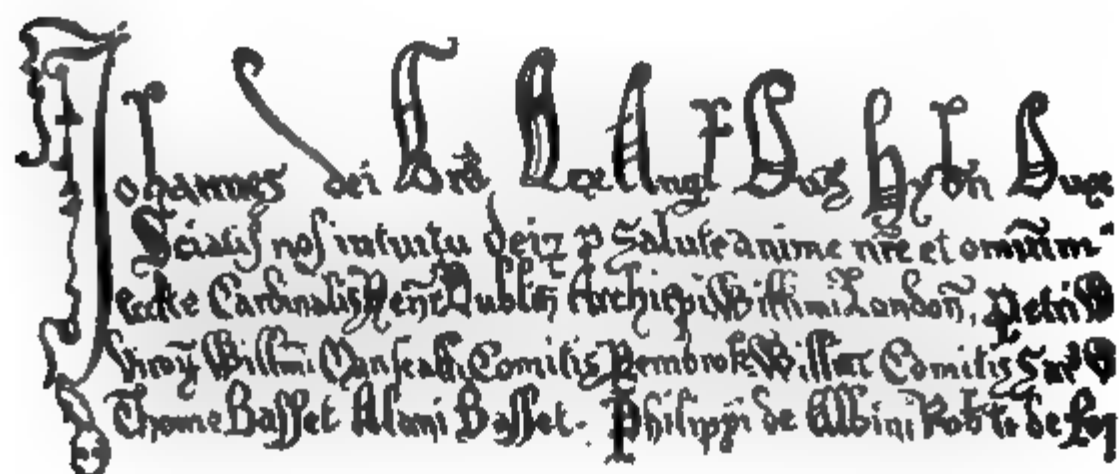 Johannes dei Gra Rex Angl Dns Hybn Dux
Sciatis nos intuitu dei ⁊ p Salute anime nre et omnium
eccte Cardinalis Henr Dublin Archiepi Willimi London, Petri
Willmi Comitis Pembrok Willmi Comitis Sar
Thome Basset Alani Basset. Philippi de Albini Robti de